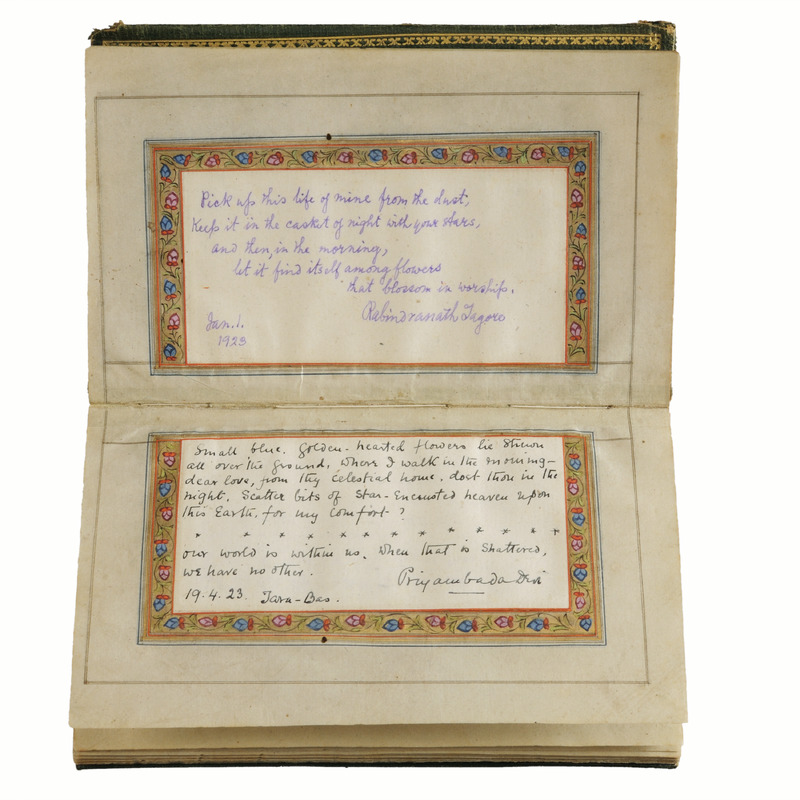 Pick up this life of mine from the dust,
Keep it in the casket of night with your stars,
and then, in the morning,
let it find itself among flowers
that blossom in worship.
Rabindranath Tagore
Jan. 1.
1923
Small blue. Golden-hearted flowers lie strewn
all over the ground, where I walk in the morning—
dear love, from thy celestial home. dost thou in the
night, Scatter bits of Star-Encrusted heaven upon
this Earth, for my Comfort?
* * * * * * * * * * * *
our world is within us. when that is shattered,
we have no other.
Priyambada Devi
19.4.23. Tara-Bas.